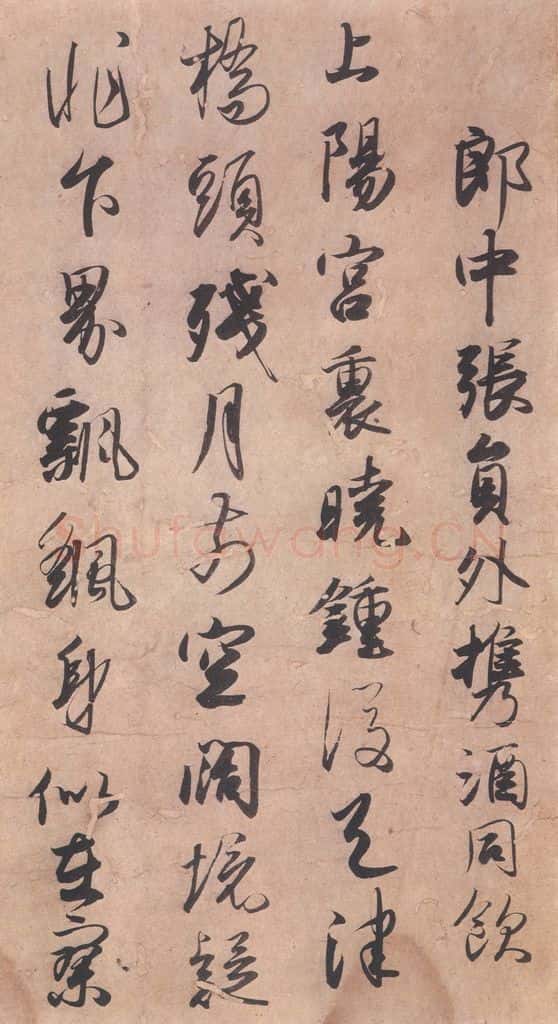 郎中張員外携酒同飲
上陽宮裏曉鍾後天津
橋頭殘月前空闊境疑
非下界飄飄身似在寥
Shufawang.CN